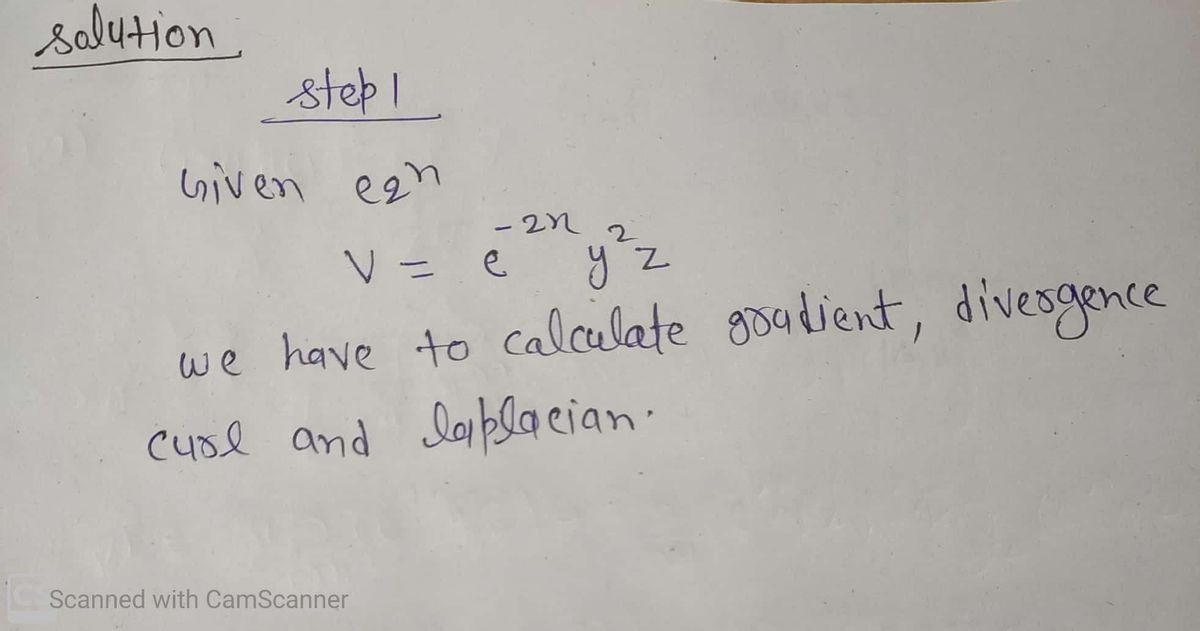 solution
step 1
Given eqn
V = e^{-2x} y^2 z
we have to calculate gradient, divergence
curl and laplacian.
CS Scanned with CamScanner